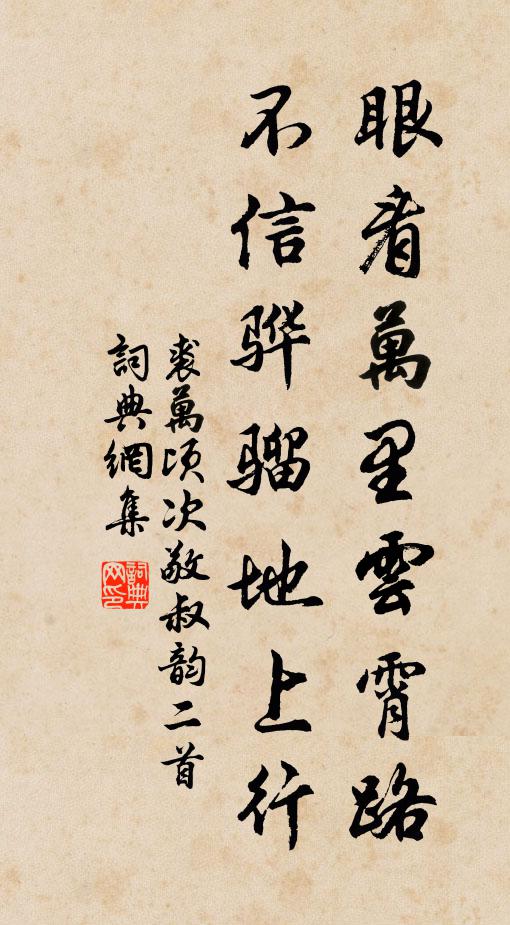 眼看萬里雲霄路
不信骅骝地上行
裘萬頃次敬叔韵二首
詞典網集
詞典网印